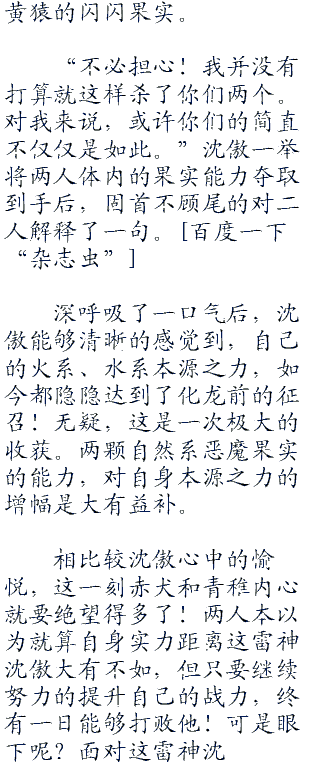 黄猿的闪闪果实。
“不必担心！我并没有
打算就这样杀了你们两个。
对我来说，或许你们的简直
不仅仅是如此。”沈傲一举
将两人体内的果实能力夺取
到手后，固首不顾尾的对二
人解释了一句。[百度一下
“杂志虫”]
深呼吸了一口气后，沈
傲能够清晰的感觉到，自己
的火系、水系本源之力，如
今都隐隐达到了化龙前的征
召！无疑，这是一次极大的
收获。两颗自然系恶魔果实
的能力，对自身本源之力的
增幅是大有益补。
相比较沈傲心中的愉
悦，这一刻赤犬和青稚内心
就要绝望得多了！两人本以
为就算自身实力距离这雷神
沈傲大有不如，但只要继续
努力的提升自己的战力，终
有一日能够打败他！可是眼
下呢？面对这雷神沈